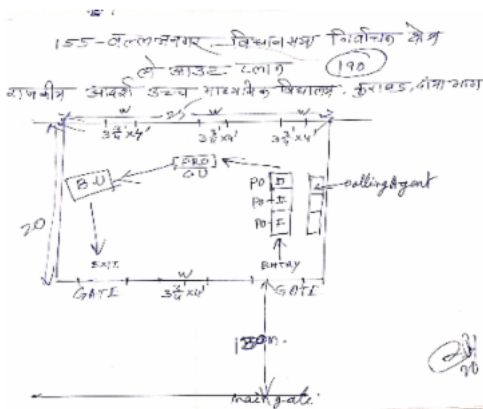 155-वल्लभनगर विधानसभा निर्वाचन क्षेत्र
ले आउट प्लान (190)
राजकीय आदर्श उच्च माध्यमिक विद्यालय, कुराबड, दांया भाग
W W W
3¾'x4' 3¾'x4' 3¾'x4'
PRO
CU
B.U
PO-III
PO-II
PO-I
Polling Agent
20
EXIT
ENTRY
GATE W GATE
3¾'x4'
main gate